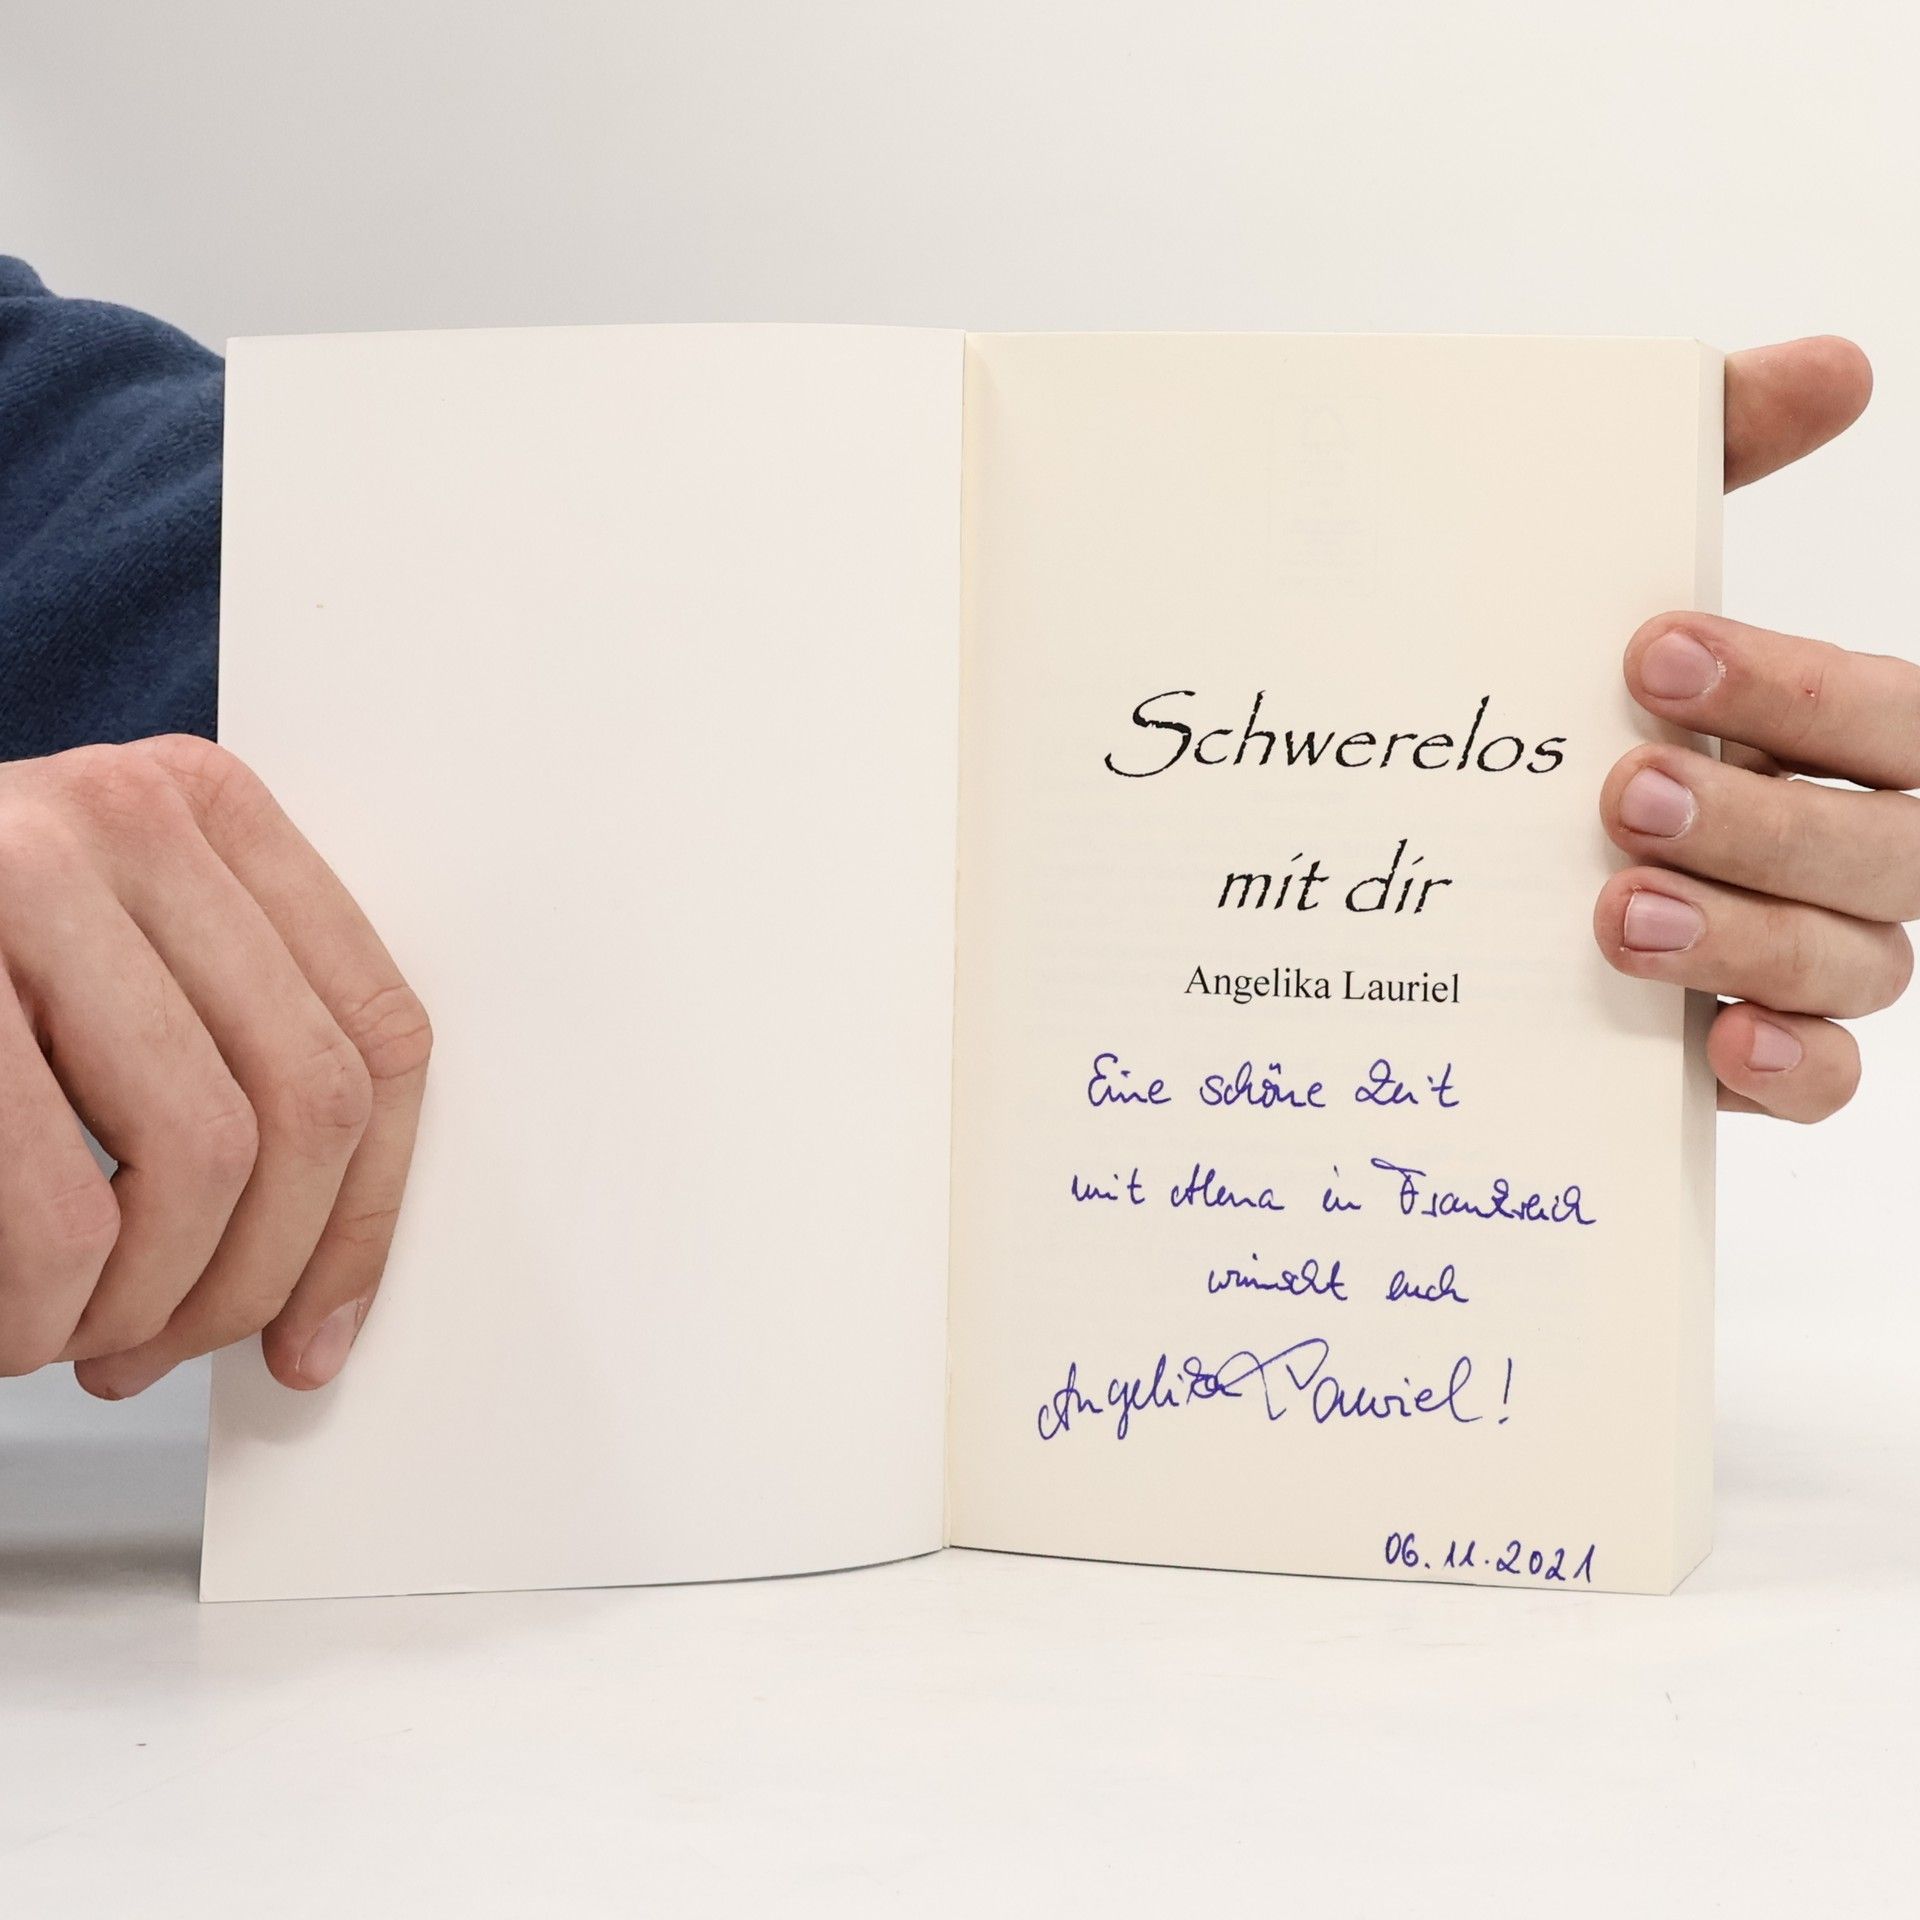 Schwerelos
mit dir
Angelika Lauriel
Eine schöne Zeit
mit Alena in Frankreich
wünscht euch
Angelika Lauriel!
06.11.2021